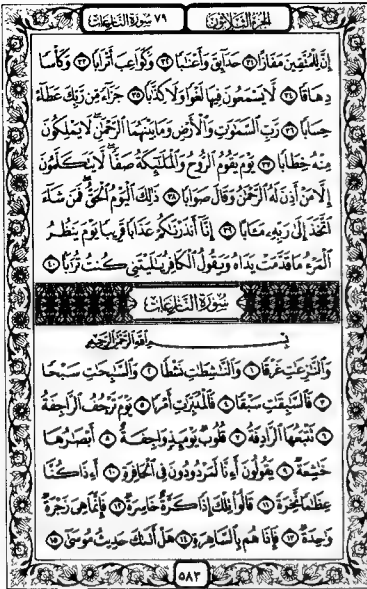 الجزء الثلاثون ٧٩ سورة النازعات
إِنَّ لِلْمُتَّقِينَ مَفَازًا ٣١ حَدَآئِقَ وَأَعْنَٰبًا ٣٢ وَكَوَاعِبَ أَتْرَابًا ٣٣ وَكَأْسًا
دِهَاقًا ٣٤ لَّا يَسْمَعُونَ فِيهَا لَغْوًا وَلَا كِذَّٰبًا ٣٥ جَزَآءً مِّن رَّبِّكَ عَطَآءً
حِسَابًا ٣٦ رَّبِّ ٱلسَّمَٰوَٰتِ وَٱلْأَرْضِ وَمَا بَيْنَهُمَا ٱلرَّحْمَٰنِ لَا يَمْلِكُونَ
مِنْهُ خِطَابًا ٣٧ يَوْمَ يَقُومُ ٱلرُّوحُ وَٱلْمَلَٰٓئِكَةُ صَفًّا لَّا يَتَكَلَّمُونَ
إِلَّا مَنْ أَذِنَ لَهُ ٱلرَّحْمَٰنُ وَقَالَ صَوَابًا ٣٨ ذَٰلِكَ ٱلْيَوْمُ ٱلْحَقُّ فَمَن شَآءَ
ٱتَّخَذَ إِلَىٰ رَبِّهِۦ مَـَٔابًا ٣٩ إِنَّآ أَنذَرْنَٰكُمْ عَذَابًا قَرِيبًا يَوْمَ يَنظُرُ
ٱلْمَرْءُ مَا قَدَّمَتْ يَدَاهُ وَيَقُولُ ٱلْكَافِرُ يَٰلَيْتَنِى كُنتُ تُرَٰبًۢا ٤٠
سُورَةُ النَّازِعَاتِ
بِسْمِ ٱللَّهِ ٱلرَّحْمَٰنِ ٱلرَّحِيمِ
وَٱلنَّٰزِعَٰتِ غَرْقًا ١ وَٱلنَّٰشِطَٰتِ نَشْطًا ٢ وَٱلسَّٰبِحَٰتِ سَبْحًا
٣ فَٱلسَّٰبِقَٰتِ سَبْقًا ٤ فَٱلْمُدَبِّرَٰتِ أَمْرًا ٥ يَوْمَ تَرْجُفُ ٱلرَّاجِفَةُ
٦ تَتْبَعُهَا ٱلرَّادِفَةُ ٧ قُلُوبٌ يَوْمَئِذٍ وَاجِفَةٌ ٨ أَبْصَٰرُهَا
خَٰشِعَةٌ ٩ يَقُولُونَ أَءِنَّا لَمَرْدُودُونَ فِى ٱلْحَافِرَةِ ١٠ أَءِذَا كُنَّا
عِظَٰمًا نَّخِرَةً ١١ قَالُوا۟ تِلْكَ إِذًا كَرَّةٌ خَاسِرَةٌ ١٢ فَإِنَّمَا هِىَ زَجْرَةٌ
وَٰحِدَةٌ ١٣ فَإِذَا هُم بِٱلسَّاهِرَةِ ١٤ هَلْ أَتَىٰكَ حَدِيثُ مُوسَىٰٓ ١٥
٥٨٣